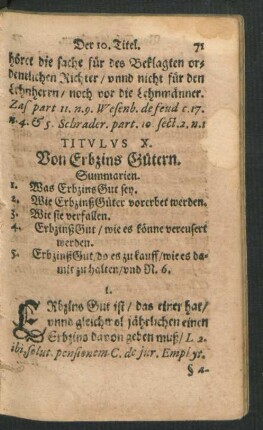 Der 10. Titel. 71
höret die sache für des Beklagten or-
dentlichen Richter / vnnd nicht für den
Lehnherrn / noch vor die Lehnmänner.
Zas part 11. n. 9. Wesenb. de feud c. 17.
n. 4. & 5. Schrader. part. 10 sect. 2. n. 1
TITVLVS X.
Von Erbzins Gütern.
Summarien.
1. Was ErbzinsGut sey.
2. Wie Erbzinß Güter vorerbet werden.
3. Wie sie verfallen.
4. ErbzinßGut / wie es könne vereusert
werden.
5. ErbzinßGut / do es zu kauff / wie es da-
mit zu halten / vnd N. 6.
1.
ERbzins Gut ist / das einer hat /
vnnd gleichwol jährlichen einen
Erbzins davon geben muß / L 2.
ibi, solut. pensionem C. de jur. Emphyt.
§ a-